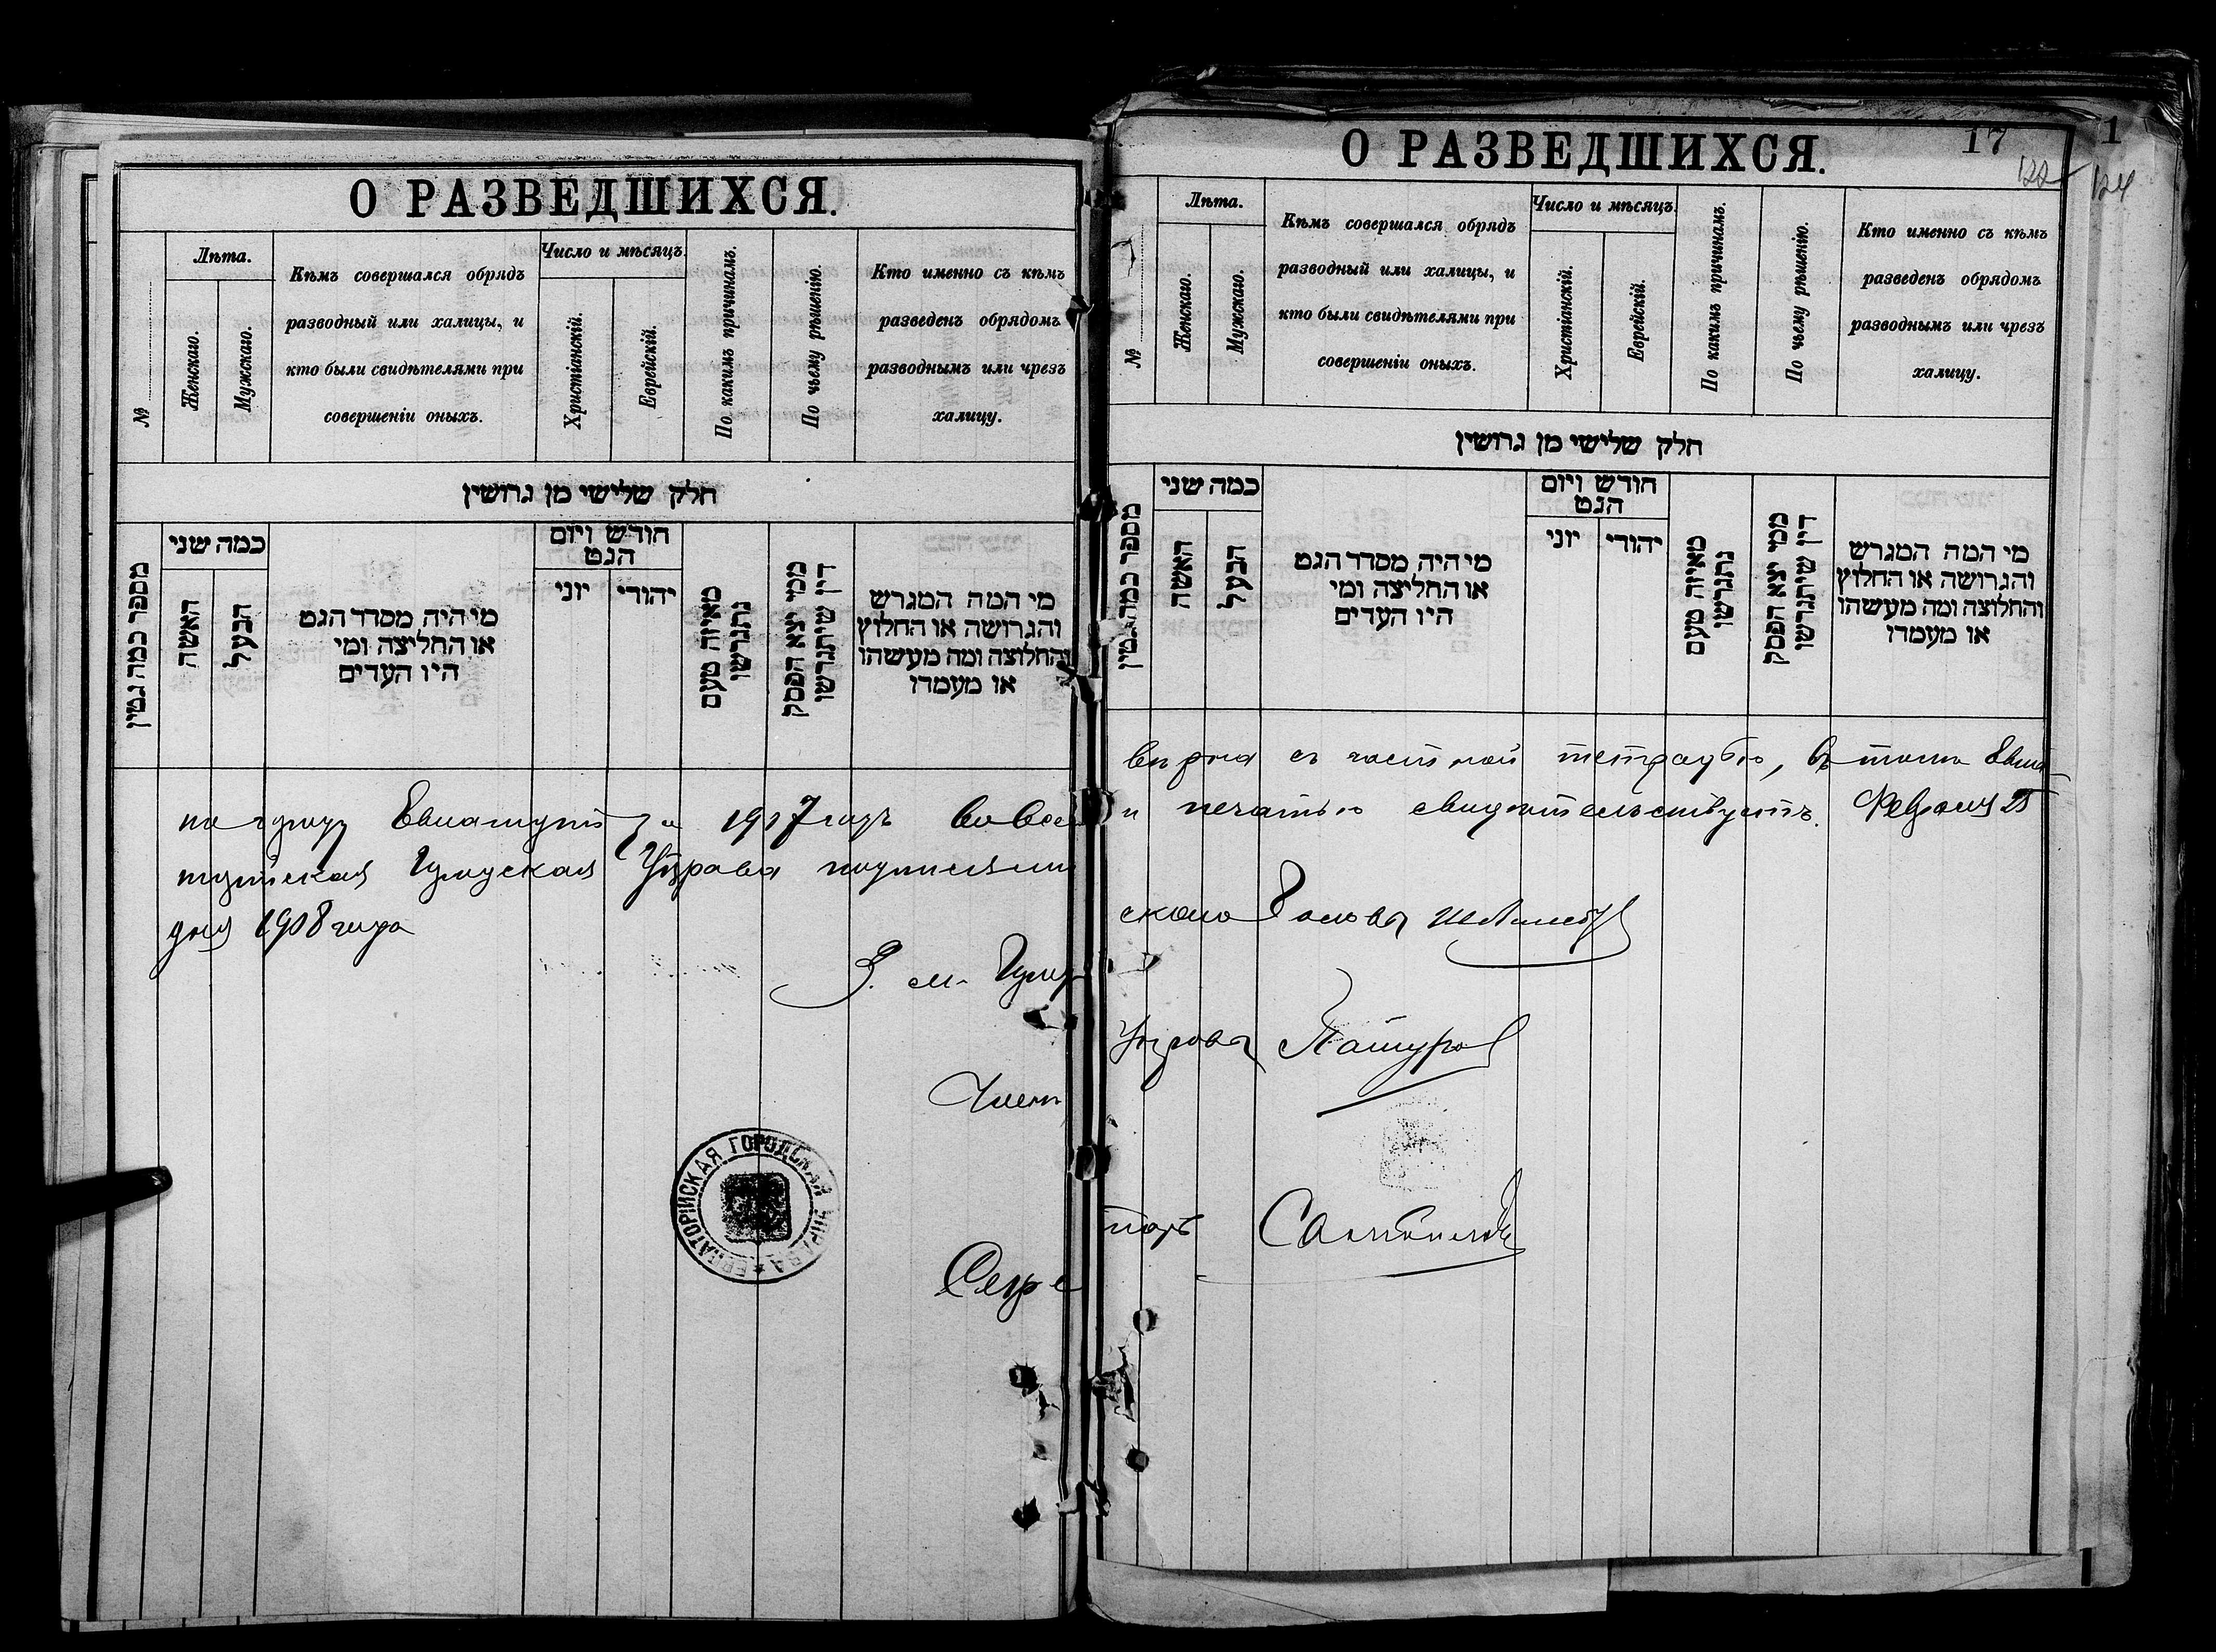 О РАЗВЕДШИХСЯ.
№
Лѣта.
Женскаго.
Мужскаго.
Кѣмъ совершался обрядъ
разводный или халицы, и
кто были свидѣтелями при
совершеніи оныхъ.
Число и мѣсяцъ.
Христіанскій.
Еврейскій.
По какимъ причинамъ.
По чьему рѣшенію.
Кто именно съ кѣмъ
разведенъ обрядомъ
разводнымъ или чрезъ
халицу.
חלק שלישי מן גרושין
מספר כמה גטין
כמה שני
האשה
הבעל
מי היה מסדר הגט
או החליצה ומי
היו העדים
חודש ויום
הגט
יוני
יהודי
מאיזה טעם
נתגרשו
ממי יצא הפסק
דין שיתגרשו
מי המה המגרש
והגרושה או החלוץ
והחלוצה ומה מעשהו
או מעמדו
по городу Евпаторіи за 1907 годъ во всем
торійская Городская Управа подписями
дня 1908 года
З. м. Город
Членъ
ЕВПАТОРІЙСКАЯ ГОРОДСКАЯ УПРАВА
Секре
О РАЗВЕДШИХСЯ.
17
122
1
124
№
Лѣта.
Женскаго.
Мужскаго.
Кѣмъ совершался обрядъ
разводный или халицы, и
кто были свидѣтелями при
совершеніи оныхъ.
Число и мѣсяцъ.
Христіанскій.
Еврейскій.
По какимъ причинамъ.
По чьему рѣшенію.
Кто именно съ кѣмъ
разведенъ обрядомъ
разводнымъ или чрезъ
халицу.
חלק שלישי מן גרושין
מספר כמה גטין
כמה שני
האשה
הבעל
מי היה מסדר הגט
או החליצה ומי
היו העדים
חודש ויום
הגט
יוני
יהודי
מאיזה טעם
נתגרשו
ממי יצא הפסק
דין שיתגרשו
מי המה המגרש
והגרושה או החלוץ
והחלוצה ומה מעשהו
או מעמדו
вѣрна съ частной тетрадью, въ томъ Евпа-
и печатью свидѣтельствуетъ. Февраля 25
скаго Головы
Управы
тарь